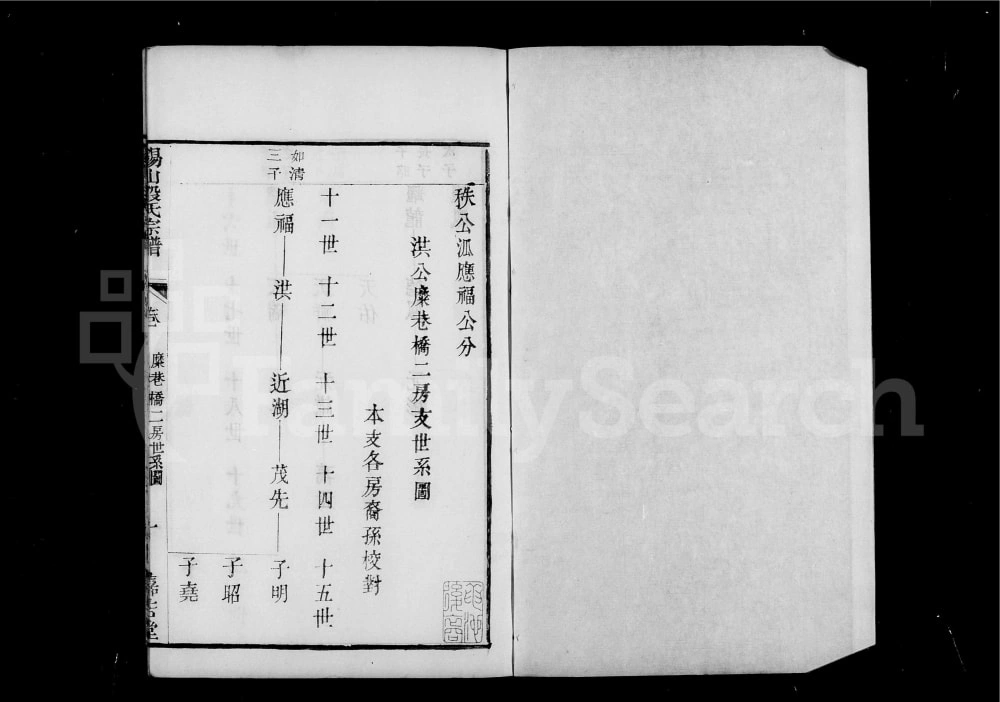 秩公派應福公分
洪公糜巷橋二房支世系圖
本支各房裔孫校對
十一世 十二世 十三世 十四世 十五世
如清
三子
應福 洪 近湖 茂先 子明
子昭
子堯
氏宗譜
糜巷橋二房世系圖
一
FamilySearch